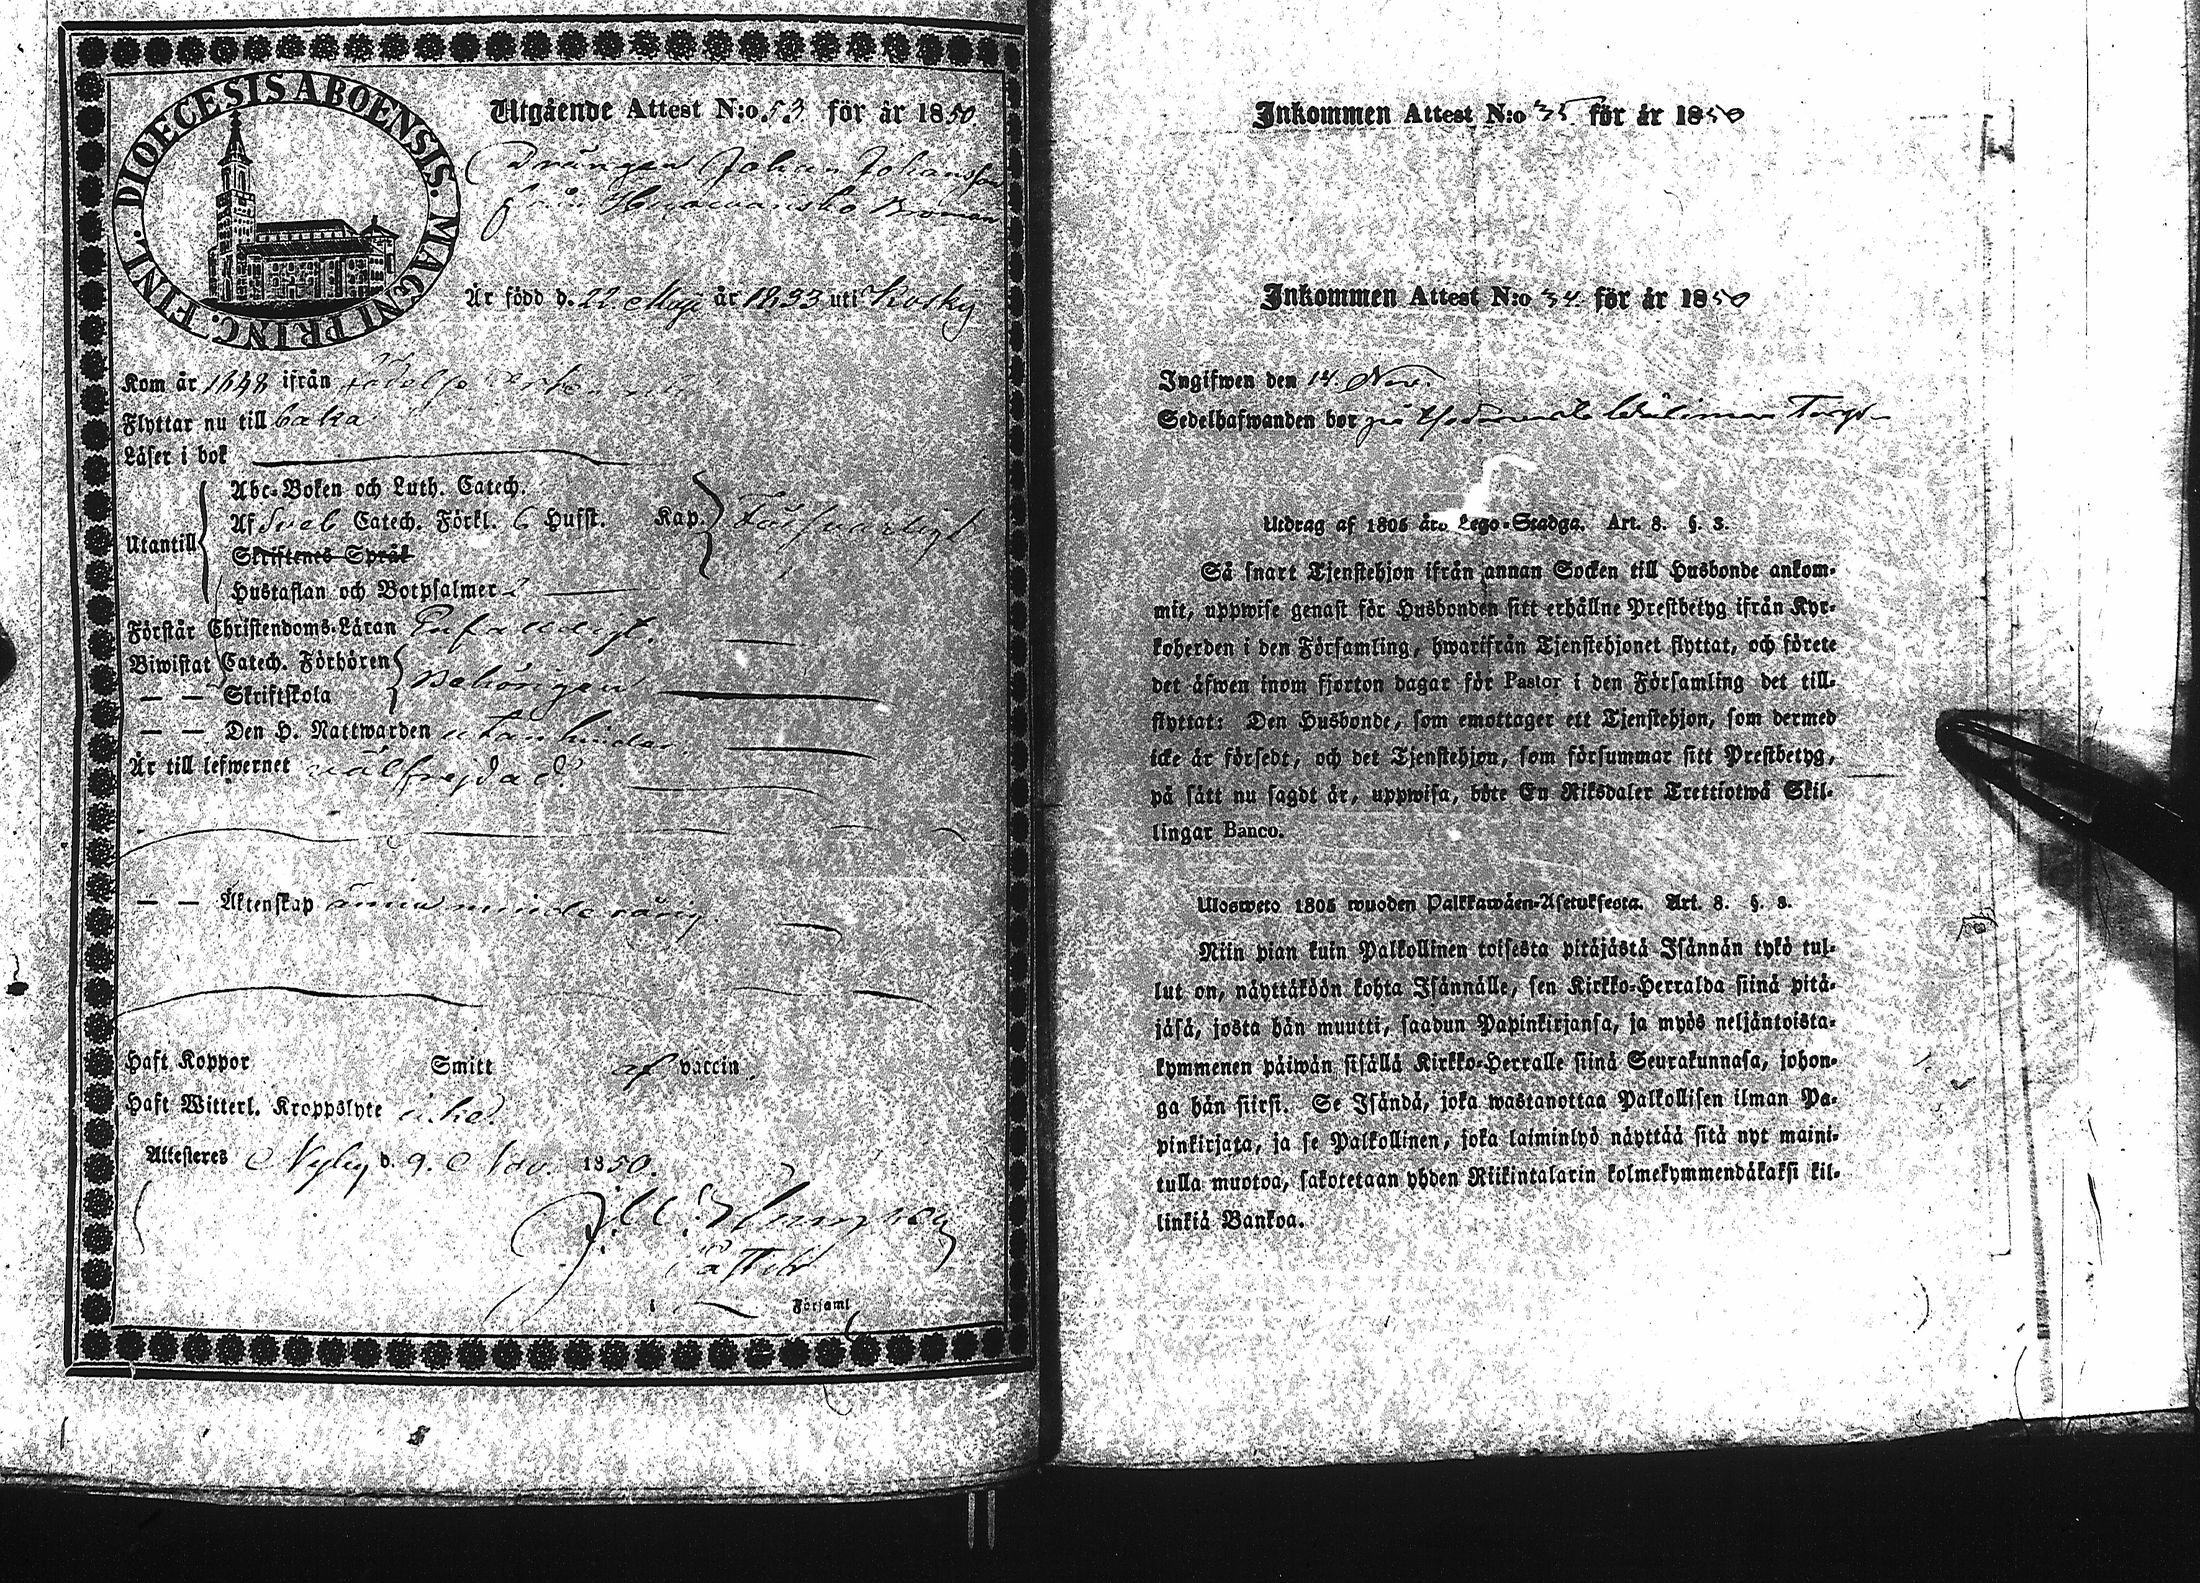 DIOECESIS ABOENSIS. MAGNI PRINC. FINL.
Utgående Attest N:o 53 för år 1850.
Drängen Johan Johansson
från
Är född d. 22 Maji år 1833 uti Kosky
Kom år 1848 ifrån
Flyttar nu till baka
Läser i bok
Utantill
Abc-Boken och Luth. Catech.
Af Sveb Catech. Förkl. 6 Hufst. Kap.
Försvarligt
Skriftenes Språk
Hustaflan och Botpsalmer
Förstår Christendoms-Läran Enfaldigt.
Biwistat Catech. Förhören
— — Skriftskola
Behörigen
— — Den H. Nattwarden utan hinder
Är till lefwernet välfrejdad.
— — Äktenskap ännu minderårig.
Haft Koppor Smitt af vaccin.
Haft Witterl. Kroppslyte icke.
Attesteres Nyby d. 9. Nov. 1850.
i Förjaml
Inkommen Attest N:o 35 för år 1850
Inkommen Attest N:o 34 för år 1850
Ingifwen den 14 Nov.
Sedelhafwanden bor på Torp
Utdrag af 1805 års Lego-Stadga. Art. 8. §. 3.
Så snart Tjenstehjon ifrån annan Socken till Husbonde ankom-
mit, uppwise genast för Husbonden sitt erhållne Prestbetyg ifrån Kyr-
koherden i den Församling, hwarifrån Tjenstehjonet flyttat, och förete
det äfwen inom fjorton dagar för Pastor i den Församling det till-
flyttat: Den Husbonde, som emottager ett Tjenstehjon, som dermed
icke är försedt, och det Tjenstehjon, som försummar sitt Prestbetyg,
på sätt nu sagdt är, uppwisa, böte En Riksdaler Trettiotwå Skil-
lingar Banco.
Ulosweto 1805 wuoden Palkkawäen-Asetuksesta. Art. 8. §. 3.
Niin pian kuin Palkollinen toisesta pitäjästä Isännän tykö tul-
lut on, näyttäköön kohta Isännälle, sen Kirkko-Herralda siinä pitä-
jäsä, josta hän muutti, saadun Papinkirjansa, ja myös neljäntoista-
kymmenen päiwän sisällä Kirkko-Herralle siinä Seurakunnasa, johon-
ga hän siirsi. Se Isändä, joka wastanottaa Palkollisen ilman Pa-
pinkirjata, ja se Palkollinen, joka laiminlyö näyttää sitä nyt maini-
tulla muotoa, sakotetaan yhden Riikintalarin kolmekymmendäkaksi kil-
linkiä Bankoa.